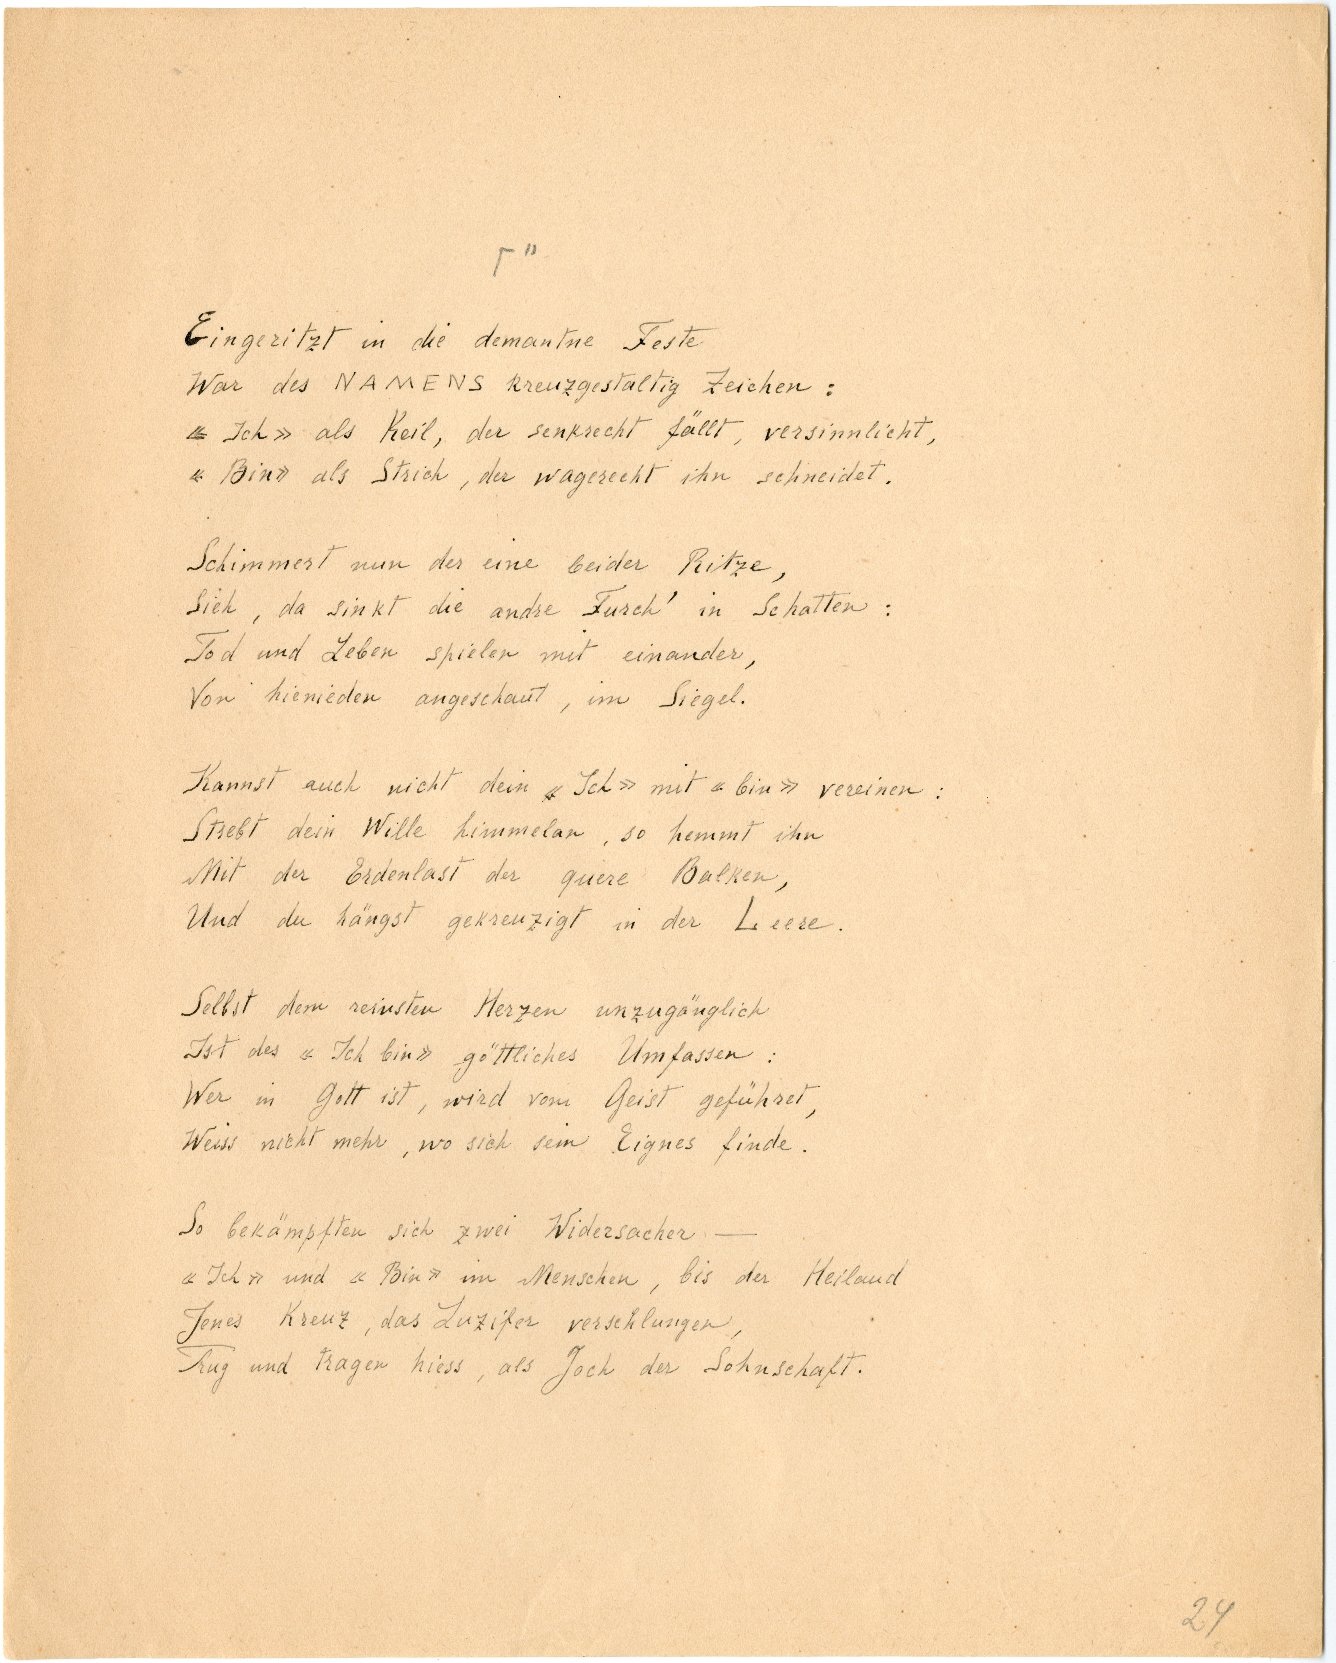 Eingeritzt in die demantne Feste
War des NAMENS kreuzgestaltig Zeichen:
«Ich» als Keil, der senkrecht fällt, versinnlicht,
«Bin» als Strich, der wagerecht ihn schneidet.
Schimmert nun der eine beider Ritze,
Sieh, da sinkt die andre Furch' in Schatten:
Tod und Leben spielen mit einander,
Von hienieden angeschaut, im Siegel.
Kannst auch nicht dein «Ich» mit «bin» vereinen:
Strebt dein Wille himmelan, so hemmt ihn
Mit der Erdenlast der quere Balken,
Und du hängst gekreuzigt in der Leere.
Selbst dem reinsten Herzen unzugänglich
Ist des «Ich bin» göttliches Umfassen:
Wer in Gott ist, wird vom Geist geführet,
Weiss nicht mehr, wo sich sein Eignes finde.
So bekämpften sich zwei Widersacher —
«Ich» und «Bin» im Menschen, bis der Heiland
Jenes Kreuz, das Luzifer verschlungen,
Trug und tragen hiess, als Joch der Sohnschaft.
24